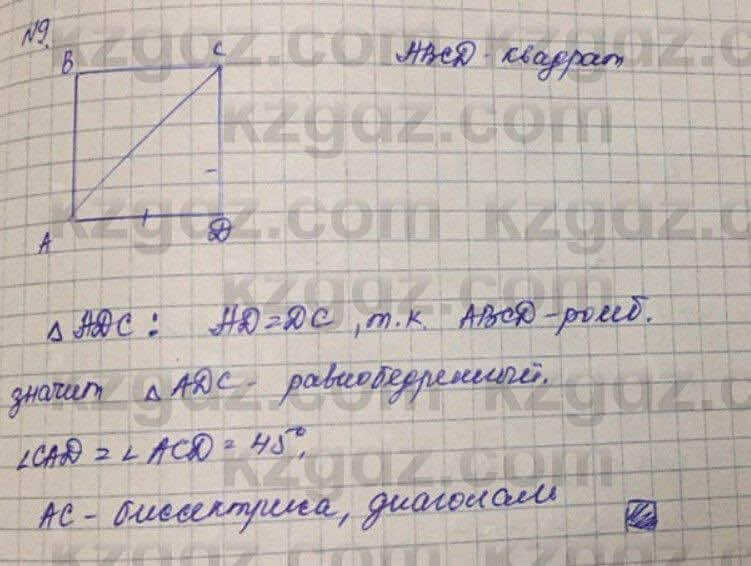 N9.
B C ABCD - квадрат
A D
△ADC: AD=DC, т.к. ABCD-ромб.
значит △ADC - равнобедренный.
∠CAD = ∠ACD = 45°.
AC - биссектриса, диагональ
kzgdz.com